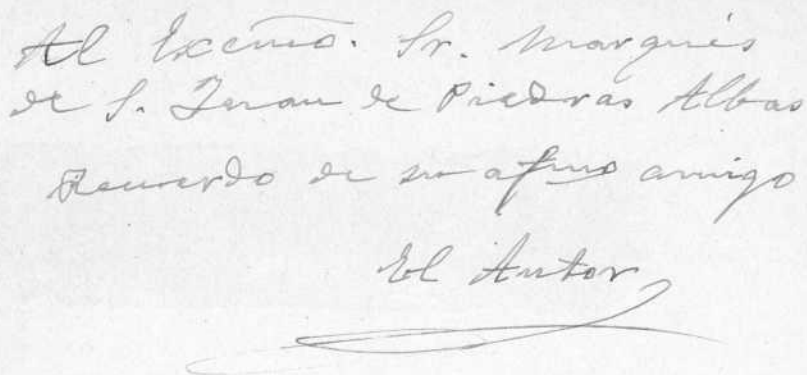 Al Excmo. Sr. Marqués
de S. Juan de Piedras Albas
Recuerdo de su afmo amigo
El Autor